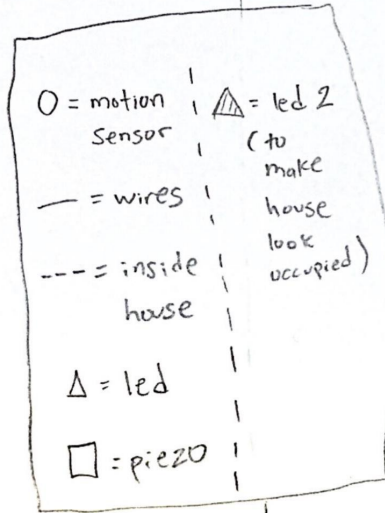 O = motion
sensor
— = wires
--- = inside
house
Δ = led
□ = piezo
△ = led 2
(to
make
house
look
occupied)